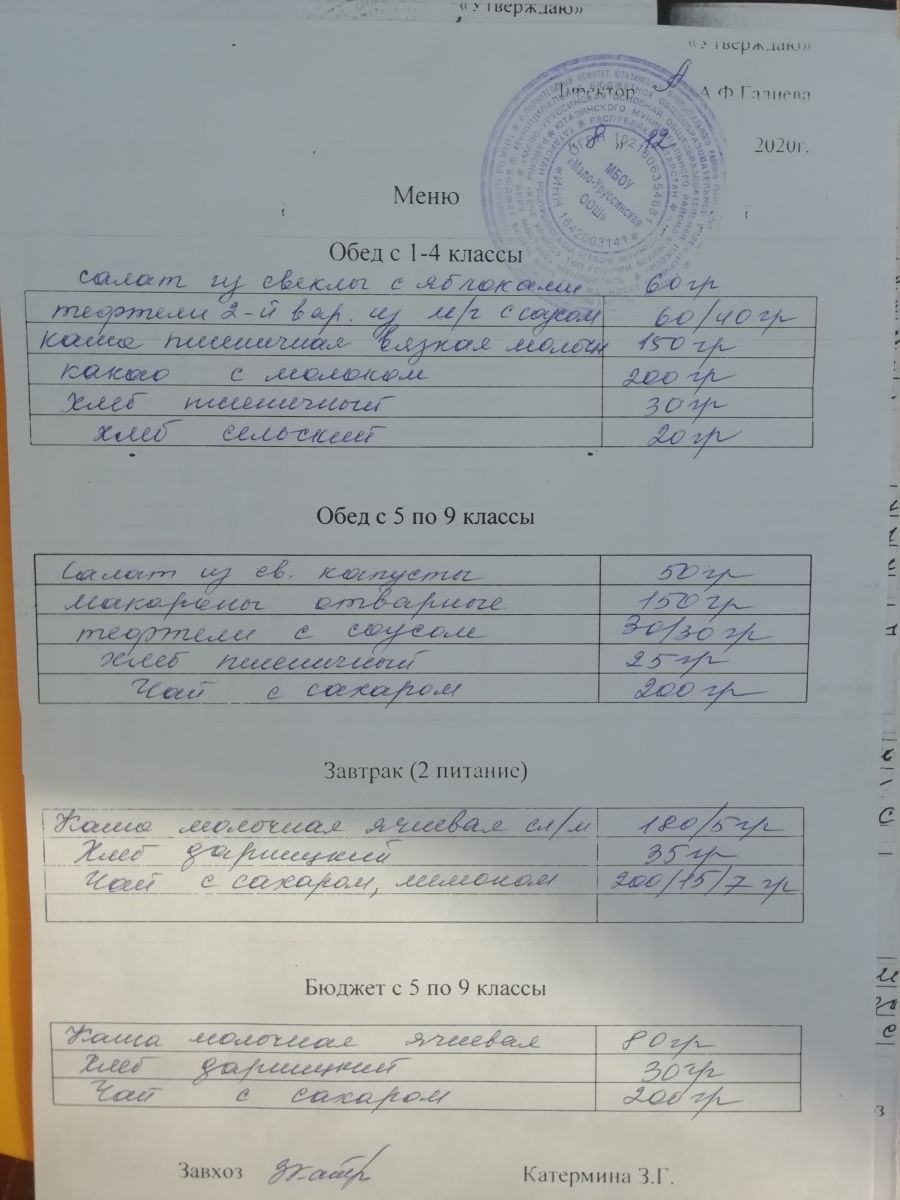 «Утверждаю»
«Утверждаю»
Директор А.Ф.Газиева
8 12 2020г.
МБОУ
«Мало-Уруссинская
ООШ»
ИНН 1642003141
Меню
Обед с 1-4 классы
салат из свеклы с яблоками 60гр
тефтели 2-й вар. из м/г с соусом 60/40гр
каша пшеничная вязкая молочн 150гр
какао с молоком 200гр
хлеб пшеничный 30гр
хлеб сельский 20гр
Обед с 5 по 9 классы
Салат из св. капусты 50гр
макароны отварные 150гр
тефтели с соусом 30/30гр
хлеб пшеничный 25гр
Чай с сахаром 200гр
Завтрак (2 питание)
Каша молочная ячневая сл/м 180/5гр
Хлеб дарницкий 35гр
Чай с сахаром, лимоном 200/15/7 гр
Бюджет с 5 по 9 классы
Каша молочная ячневая 80гр
Хлеб дарницкий 30гр
Чай с сахаром 200гр
Завхоз Катермина З.Г.